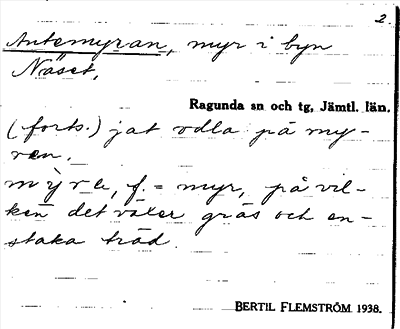 2.
Antemyran, myr i byn
Näset,
Ragunda sn och tg, Jämtl. län.
(forts.) jat odla på my-
ren.
mỳra, f. = myr, på vil-
ken det växer gräs och en-
staka träd.
BERTIL FLEMSTRÖM 1938.